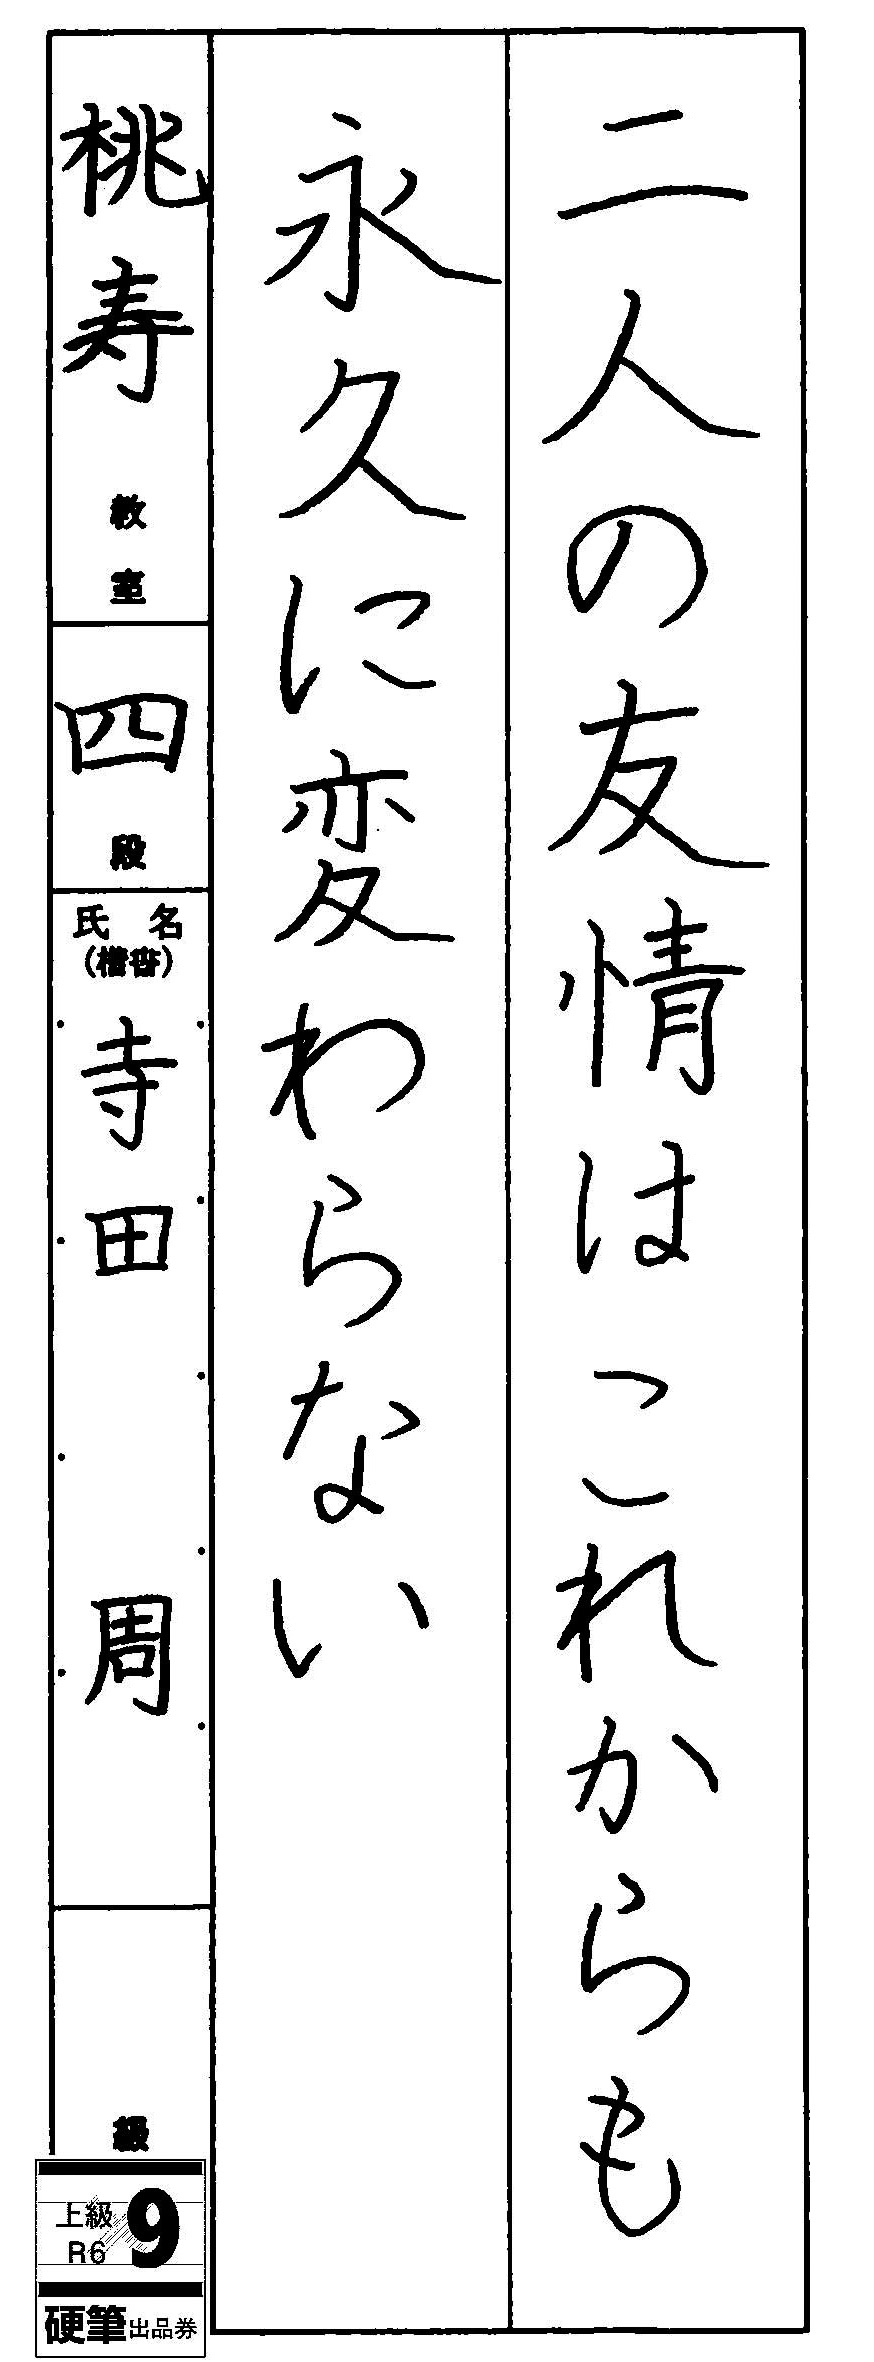 二人の友情はこれからも
永久に変わらない
桃寿教室
四段
氏名
(楷書)
寺田 周
級
上級 9
R6
硬筆出品券